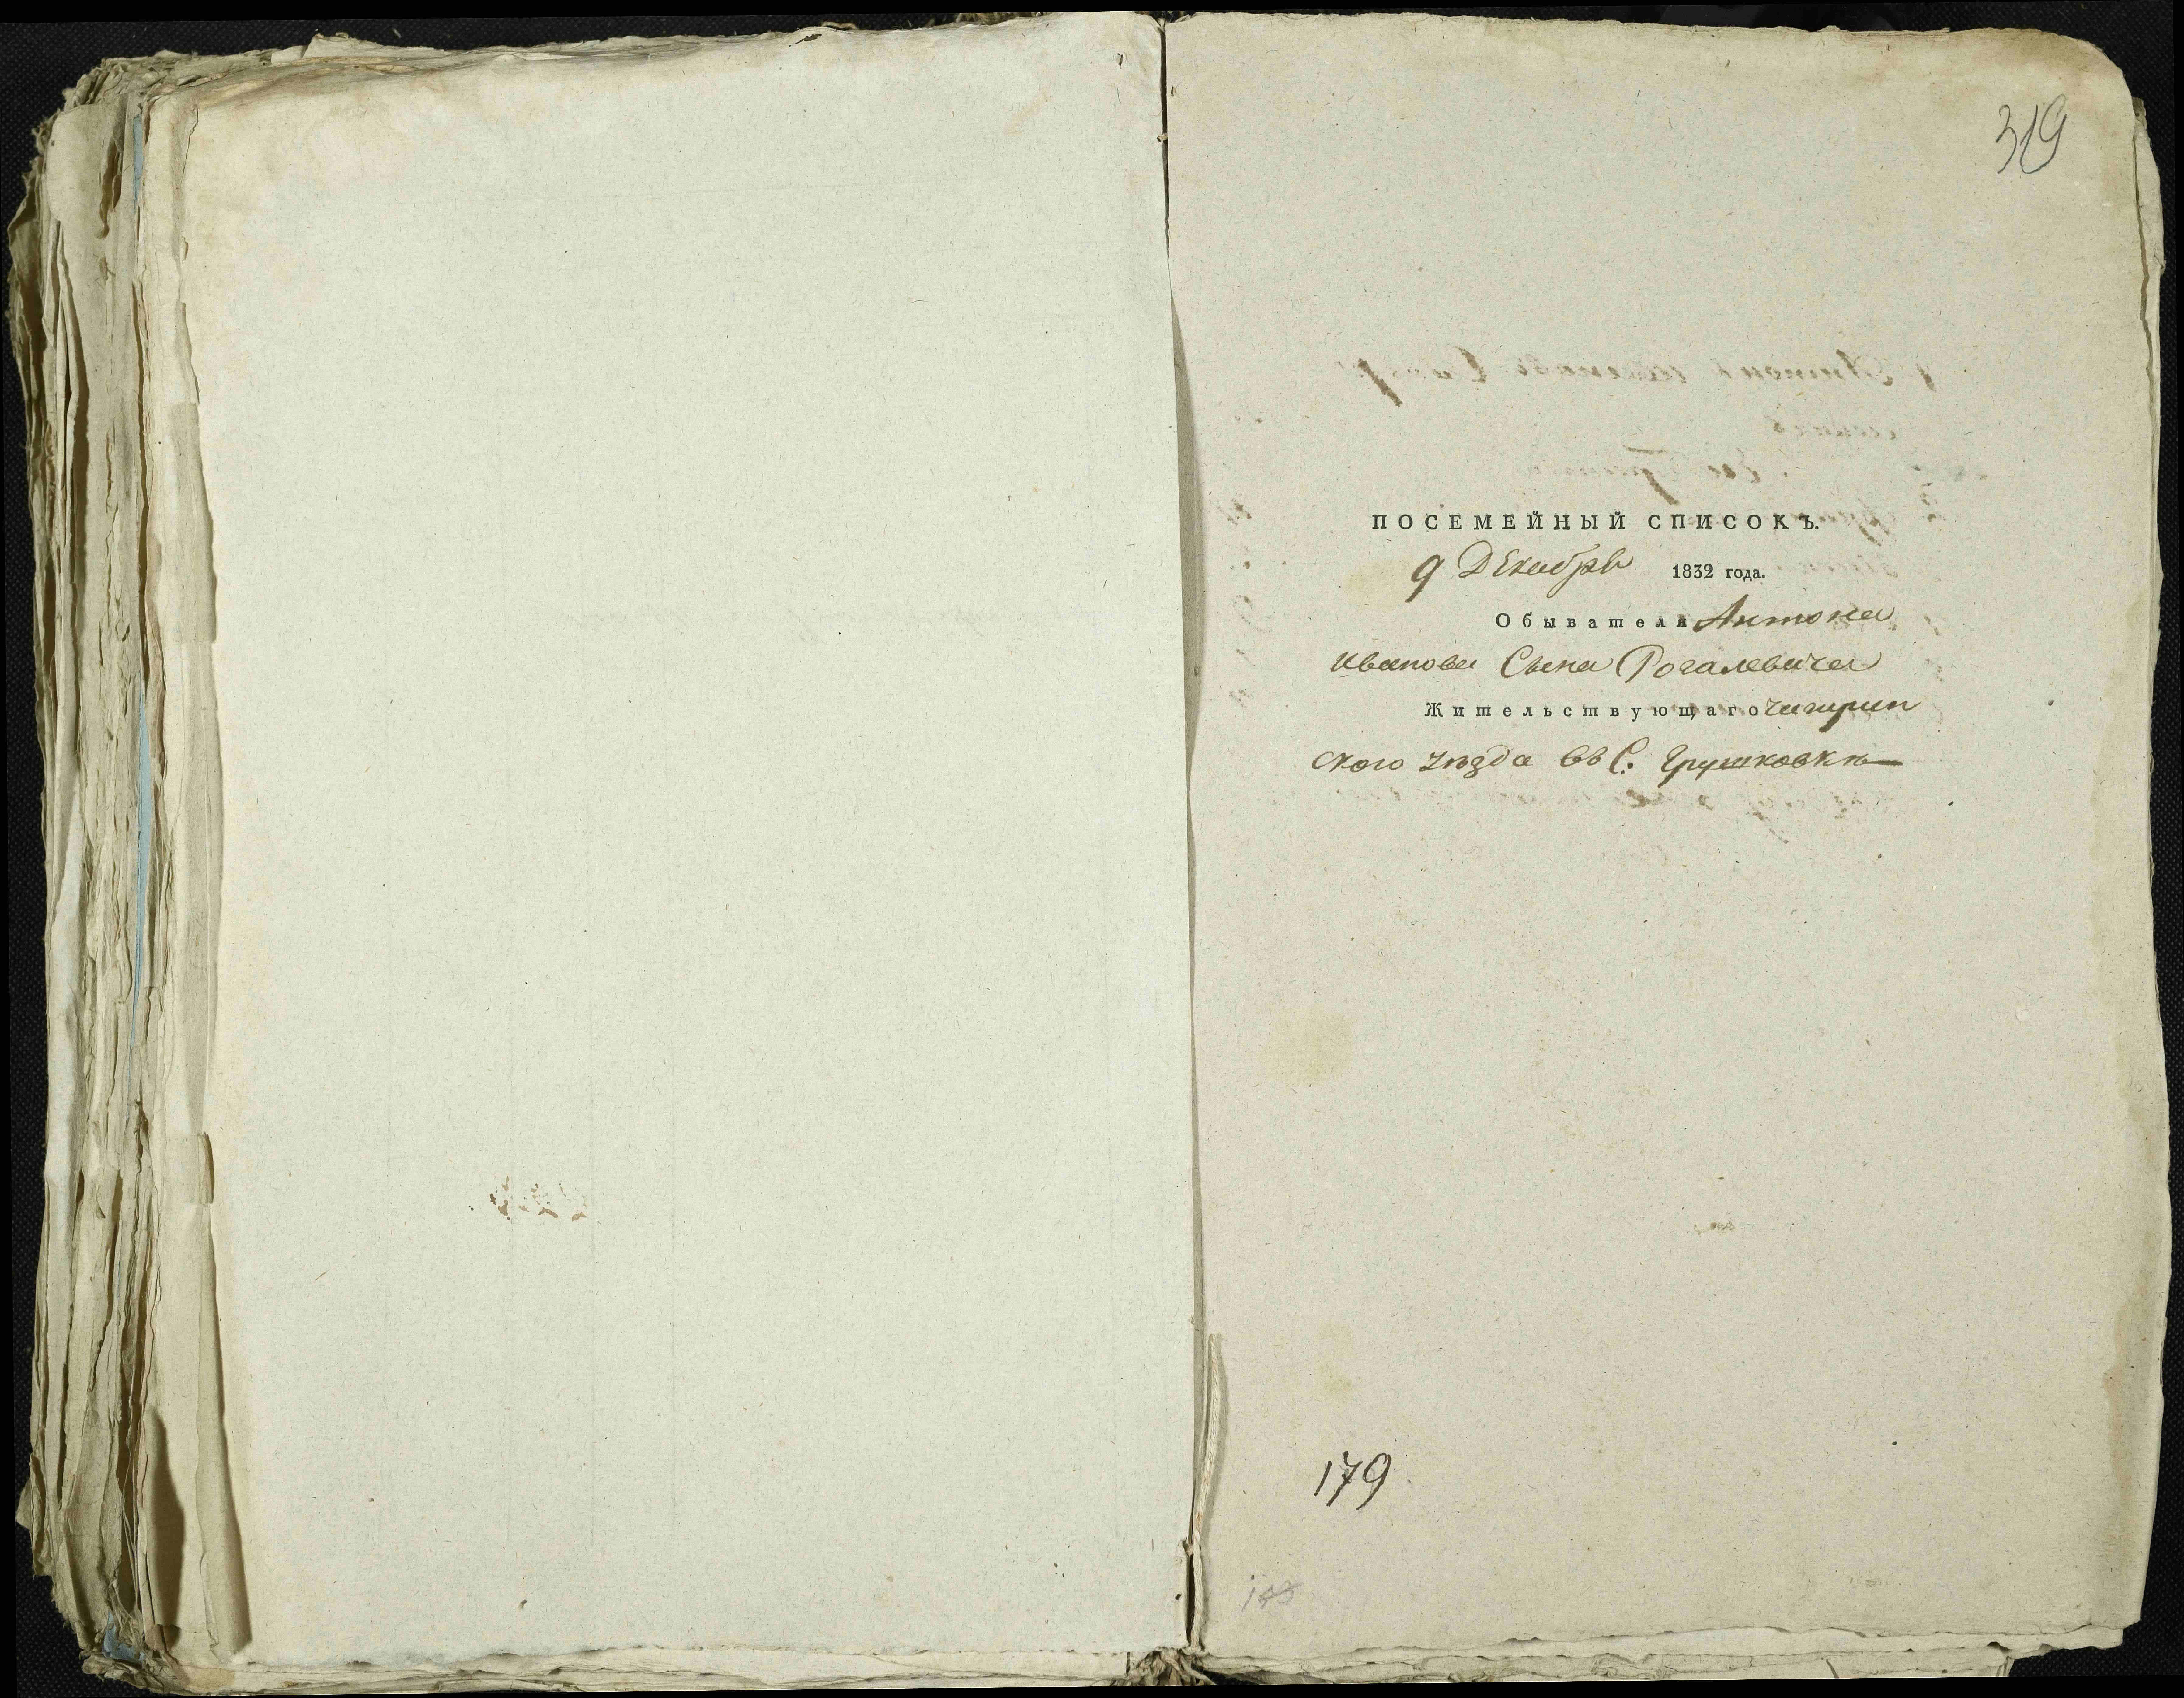 319
ПОСЕМЕЙНЫЙ СПИСОКЪ.
9 Декабря 1832 года.
Обывателя Антона
Иванова Сына Рогалевича
Жительствующаго Чигирин
ского уѣзда въ С. Грушковкѣ
179